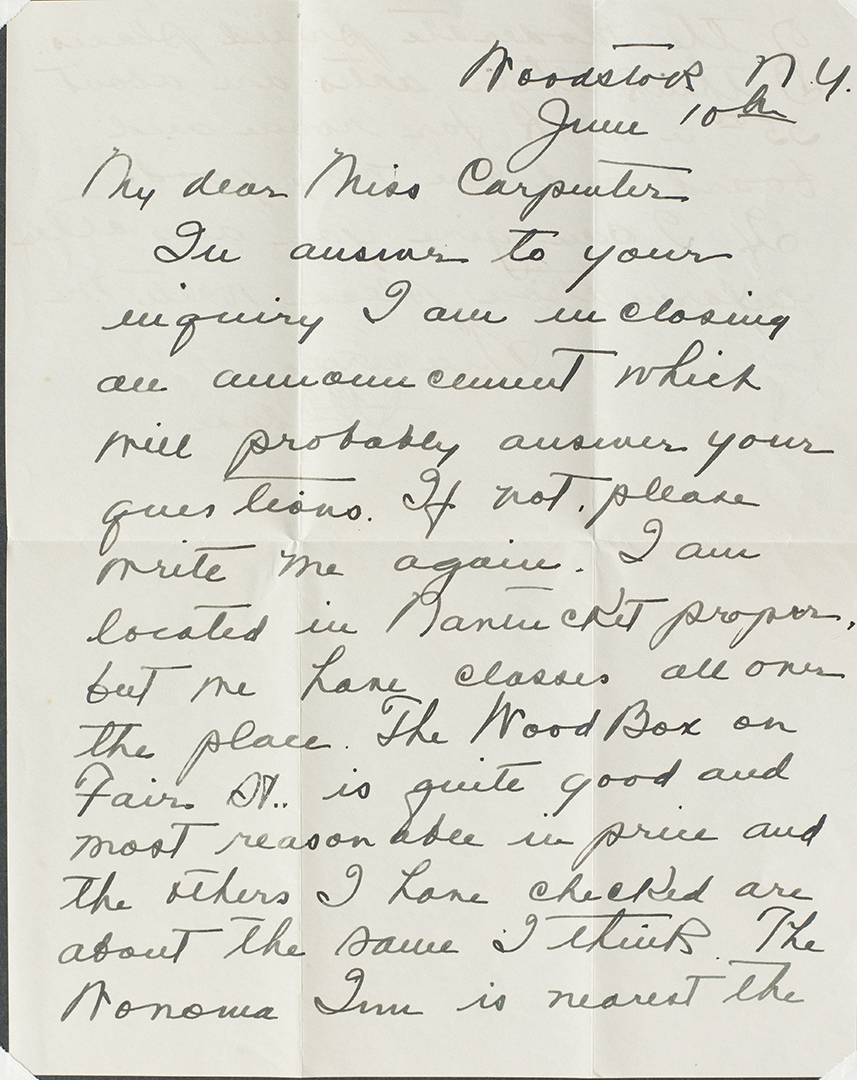 Woodstock N.Y.
June 10th
My dear Miss Carpenter
In answer to your
inquiry I am inclosing
an announcement which
will probably answer your
questions. If not, please
write me again. I am
located in Nantucket proper,
but we have classes all over
the place. The Wood Box on
Fair St.. is quite good and
most reasonable in price and
the others I have checked are
about the same I think. The
Wonoma Inn is nearest the